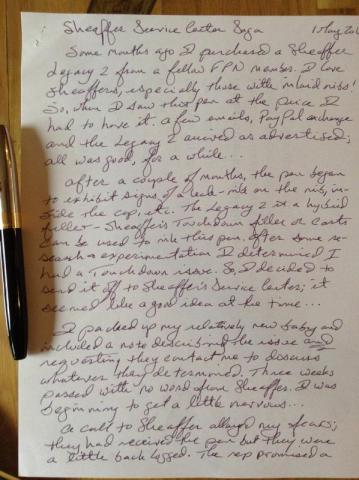 Sheaffer Service Center Saga
1 Aug 20
Some months ago I purchased a Sheaffer
Legacy 2 from a fellow FPN member. I love
Sheaffers, especially those with inlaid nibs!
So, when I saw this pen at the price I
had to have it. A few emails, PayPal exchange
and the Legacy 2 arrived as advertised;
all was good, for a while...
After a couple of months, the pen began
to exhibit signs of a leak - ink on the nib, in-
side the cap, etc. The Legacy 2 is a hybrid
filler - Sheaffer's Touchdown filler or carts
can be used to ink this pen. After some re-
search & experimentation I determined I
had a Touchdown issue. So, I decided to
send it off to Sheaffer's Service Center; it
seemed like a good idea at the time...
I packed up my relatively new baby and
included a note describing the issue and
requesting they contact me to discuss
whatever they determined. Three weeks
passed with no word from Sheaffer. I was
beginning to get a little nervous...
A call to Sheaffer allayed my fears;
they had received the pen but they were
a little backlogged. The rep promised a